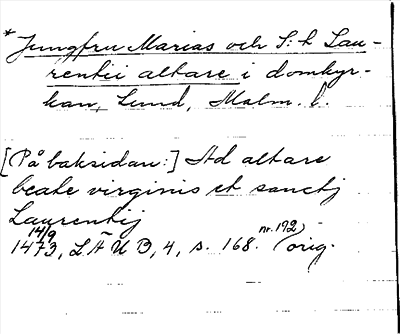 *Jungfru Marias och S:t Lau-
rentii altare i domkyr-
kan, Lund, Malm. l.
[På baksidan:] Ad altare
beate virginis et sanctj
Laurentij
14/9 1473, LÄUB, 4, s. 168. nr. 192) (orig.